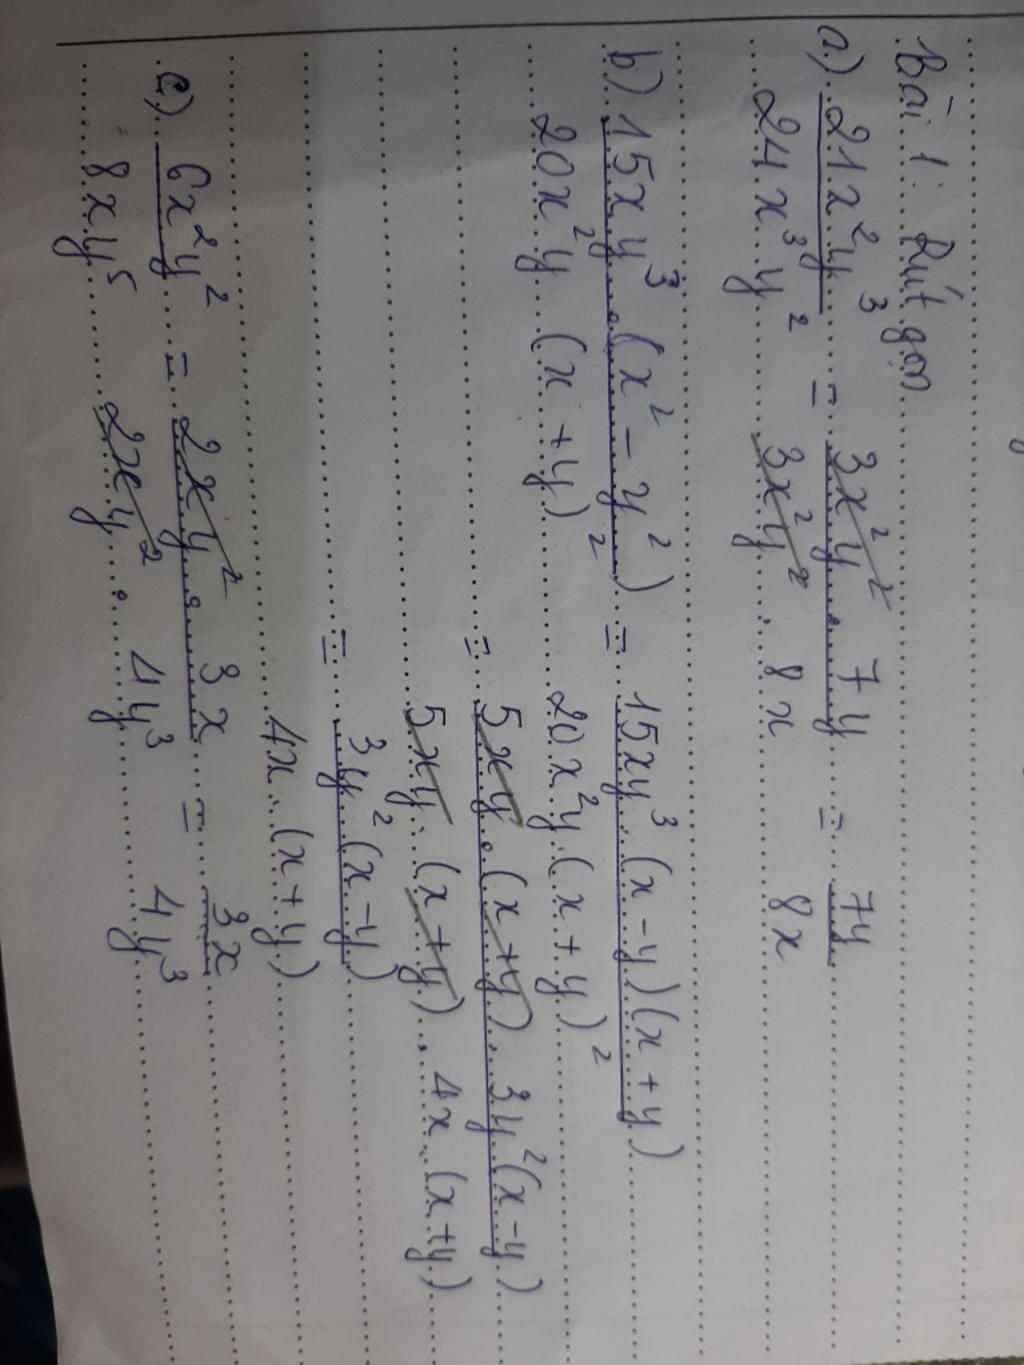 Bài 1: Rút gọn
a) 21x²y³ / 24x³y² = 3x²y² . 7y / 3x²y² . 8x = 7y / 8x
b) 15xy³ . (x² - y²) / 20x²y (x + y)² = 15xy³ (x - y) (x + y) / 20x²y (x + y)²
= 5xy . (x + y) . 3y² (x - y) / 5xy . (x + y) . 4x . (x + y)
= 3y² (x - y) / 4x . (x + y)
c) 6x²y² / 8xy⁵ = 2xy² . 3x / 2xy² . 4y³ = 3x / 4y³